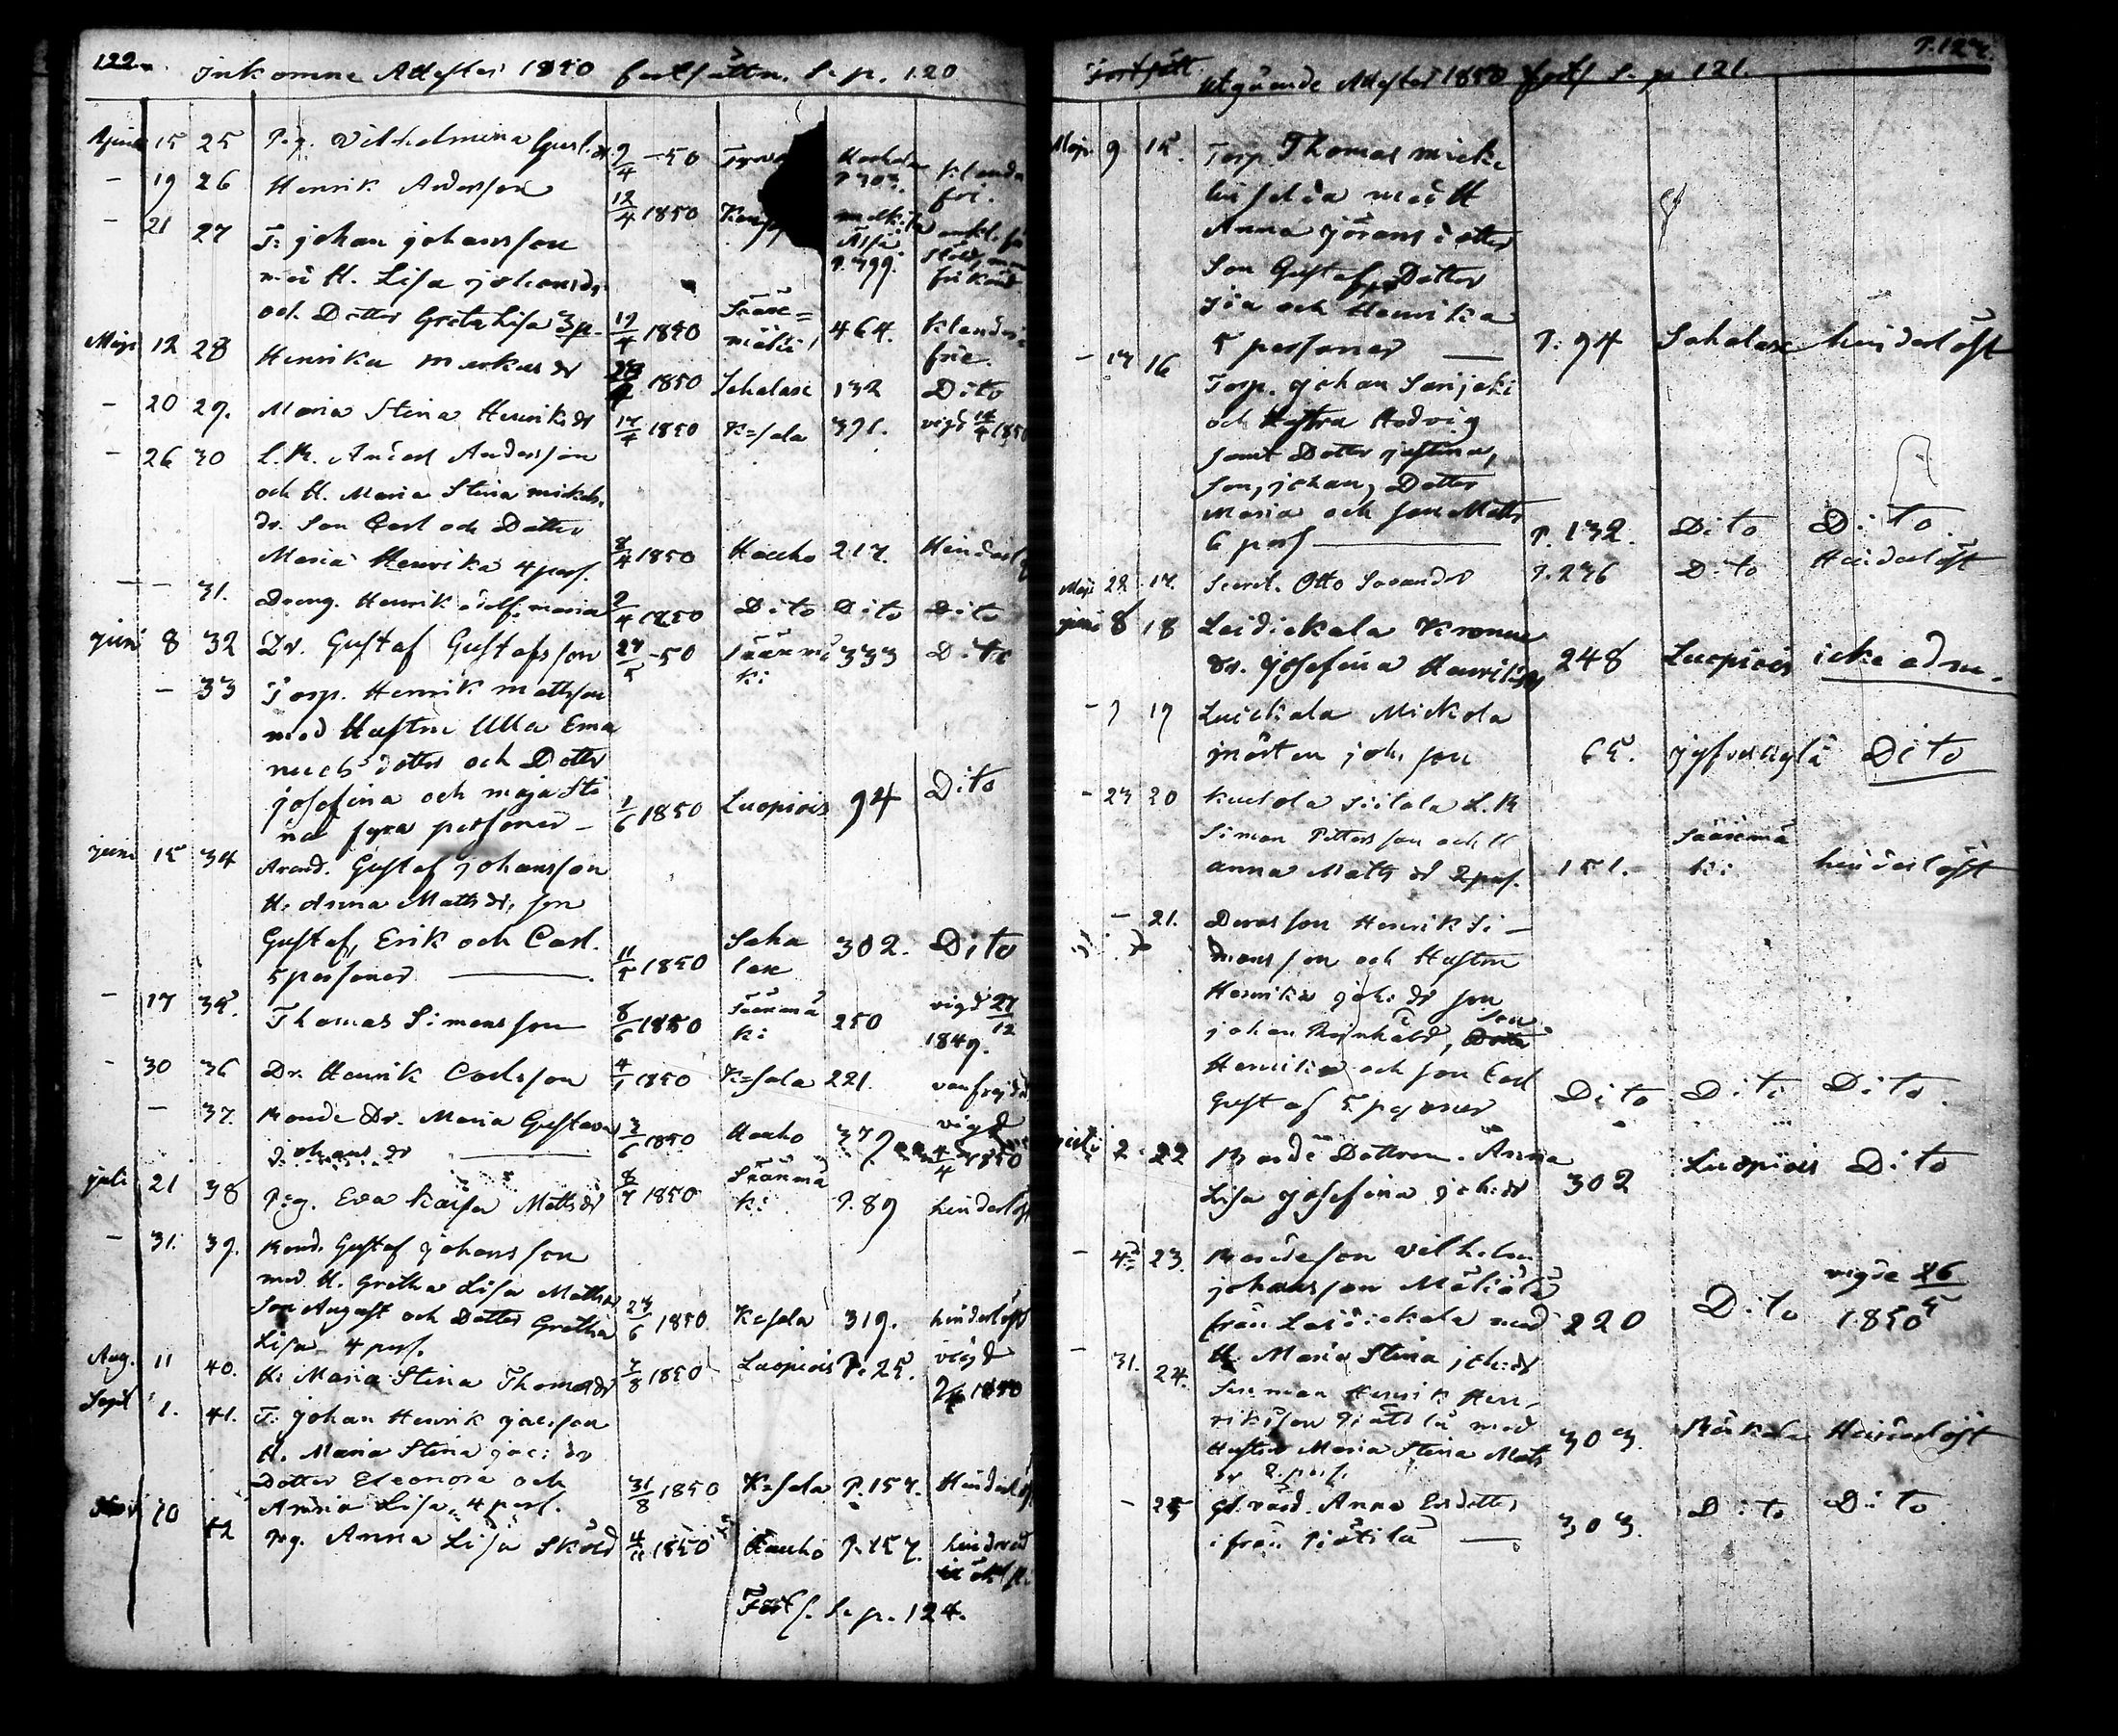 122.
Inkomne Attester 1850 fortsättn. S. p. 120
April 15 25 Pig. Vilhelmina Gust. dr 9/4 -50 Hauho P. 303. klander
19 26 Henrik Andersson 12/4 1850 fri.
21 27 T: johan johansson
med H. Lisa johansdr P. 399.
och Dotter Greta Lisa 3 p. 19/4 1850 Säräs= mäki 464. klander= frie.
Maji 12 28 Henrika Markus dr 28/4 1850 Sahalax 132 Dito
20 29. Maria Stina Henriks dr 14/4 1850 K=sala 391. vigd 14/4 1850
26 30 L.K. Anders Andersson
och H. Maria Stina Mickels.
dr. Son Carl och Dotter
Maria Henrika 4 pers. 8/4 1850 Hauho 217. Hinderl
31. Dreng. Henrik Adolf maria 9/4 1850 Dito Dito Dito
juni 8 32 Dr. Gustaf Gustafsson 27/5 -50 Säärmä ki 333 Dito
33 Torp. Henrik Mattsson
med Hustru Ulla Ema
nuels dotter och Dotter
josefina och maja Sti
na fyra personer 1/6 1850 Luopiois 94 Dito
juni 15 34 Arend. Gustaf johansson
H. Anna Matts dr, son
Gustaf, Erik och Carl.
5 personer 11/5 1850 Saha lax 302. Dito
17 35. Thomas Simonsson 8/6 1850 Säärmä ki 250 vigd 27/12 1849.
30 36 Dr. Henrik Carlsson 4/5 1850 K=sala 221. vanfrejdad
37. Bonde Dr. Maria Gustava
johans dr 3/6 1850 Hauho 379 vigd 4/4 1850
juli 21 38 Pig. Eva Kaisa Matts dr 8/7 1850 Säärmä ki P. 89 hinderlöst
31. 39. Bond. Gustaf johansson
med H. Gretha Lisa Matts dr
Son August och Dotter Gretha 23/6 1850 K=sala 319. hinderlöst
Lisa 4 pers.
Aug. 11 40. H: Maria Stina Thomasdr 7/8 1850 Luopiois P. 25. vigd 1850
Sept 1. 41. T: johan Henrik jacsson
H. Maria Stina jac: dr
Dotter Eleonora och
Anna Lisa 4 pers. 31/8 1850 K=sala P. 157. Hinderl
10 42 Pig. Anna Lisa Sköld 4/11 1850 Hauho P. 157.
Forts. S. p. 124.
Fortsätt. Utgående Attester 1850 forts S. p 121. P. 123.
Maji 9 15. Torp. Thomas Micke
lin
Anna jörans dotter
Son Gustaf, Dotter
och Henrika
5 personer P. 94 Sahalax hinderlöst
17 16 Torp. johan Sarijoki
och Hustru Hedvig
samt Dotter justina,
Son, johan, Dotter
Maria och Son Matts
6 pers P. 132. Dito Dito
Maji 22 17. Secret. Otto P. 236 Dito Hinderlöst
juni 8 18 Leidickala Kronna
dr. josefina Henriks dr 248 Luopiois icke adm.
9 19 Luickala Mickola
Mårten joh. son 65. Dito
23 20 Kuckola Siitala L.K
Simon Pettersson och H
Anna Matts dr 2 pers. 151. Säärmä ki: hinderlöst
21. Deras son Henrik Si
monsson och Hustru
Henrika joh: dr son
johan Reinhold, Dotter Son
Henrika och son Carl
Gustaf 5 personer Dito Dito Dito.
2 22 Bonde Dottren. Anna
Lisa josefina joh: dr 302 Luopiois Dito
4 23. Bondeson Vilhelm
johansson Mäkälä
från Laidickala med 220 Dito vigde 26/5 1850
H. Maria Stina joh: dr
31. 24. Henrik Hen
riksson med
Hustru Maria Stina Matts
dr 2. pers. 303. Hinderlöst
25 Anna Eriks dotter
ifrån 303. Dito Dito